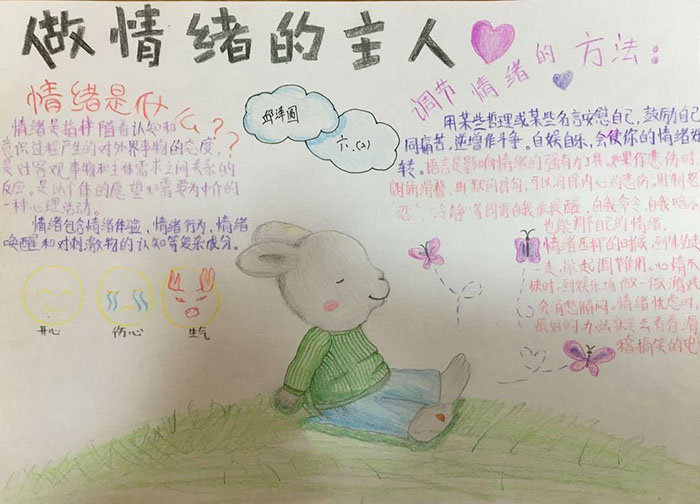 做情绪的主人
情绪是什么??
情绪是指伴随着认知和
意识过程产生的对外界事物的态度,
是对客观事物和主体需求之间关系的
反应,是以个体的愿望和需要为中介的
一种心理活动。
情绪包含情绪体验,情绪行为,情绪
唤醒和对刺激物的认知等复杂成分。
开心
伤心
生气
六、(2)
调节情绪的方法:
用某些哲理或某些名言安慰自己,鼓励自己
同痛苦,逆境作斗争。自娱自乐,会使你的情绪好
转。语言是影响情绪的强有力工具。如果你悲伤时
朗诵滑稽、幽默的诗句,可以消除内心的悲伤。用制怒
忍"、"冷静"等词语自我提醒,自我命令,自我暗示
也能调节自己的情绪。
情绪压抑的时候,到外边走
一走,能起调节作用。心情不
快时,到娱乐场做一做游戏
会消愁解闷。情绪忧虑时,
最好的办法就是去看看滑
稽搞笑的电